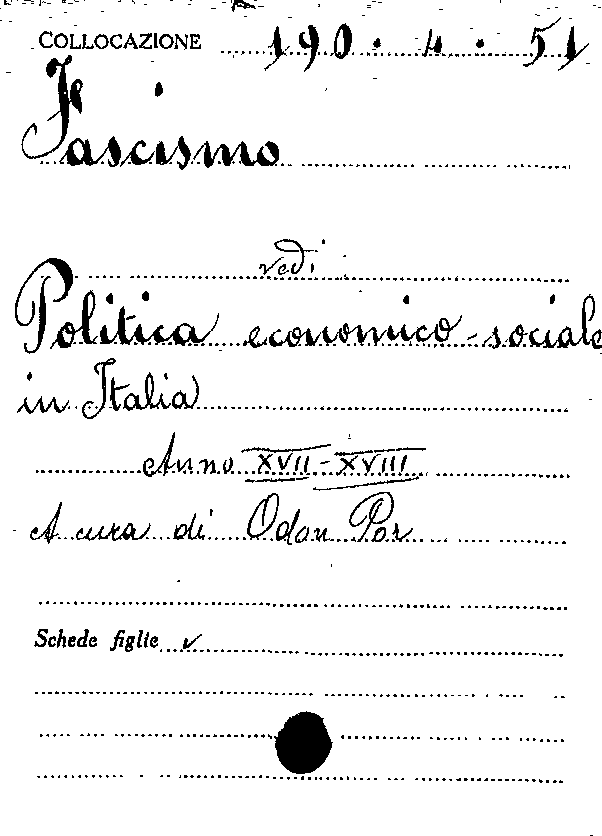 COLLOCAZIONE 190.4.51
Fascismo
vedi
Politica economico-sociale
in Italia
Anno XVII-XVIII
A cura di Odon Por
Schede figlie